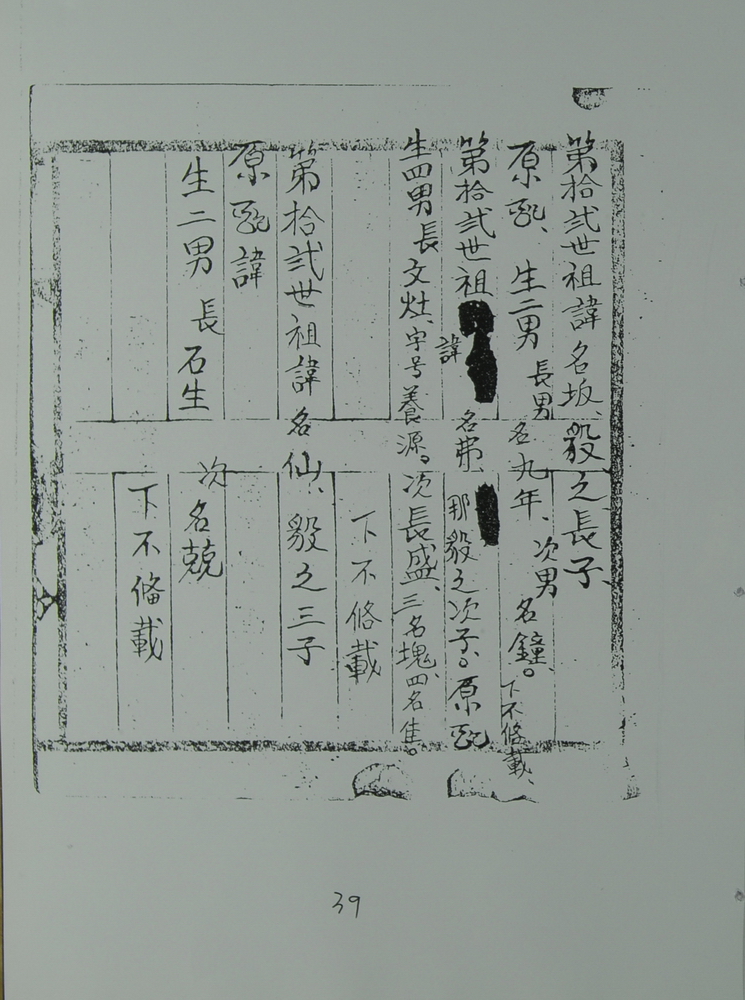 第拾弍世祖諱名坂、毅之長子、
原配、生二男長男名九年、次男名鐘。下不俻載、
第拾弍世祖諱名弗、那毅之次子。原配
生四男長文灶、字号養源。次長盛、三名塊、四名隹。
下不俻載
第拾弍世祖諱名仙、毅之三子
原配諱
生二男長石生
次名兢
下不俻載
39